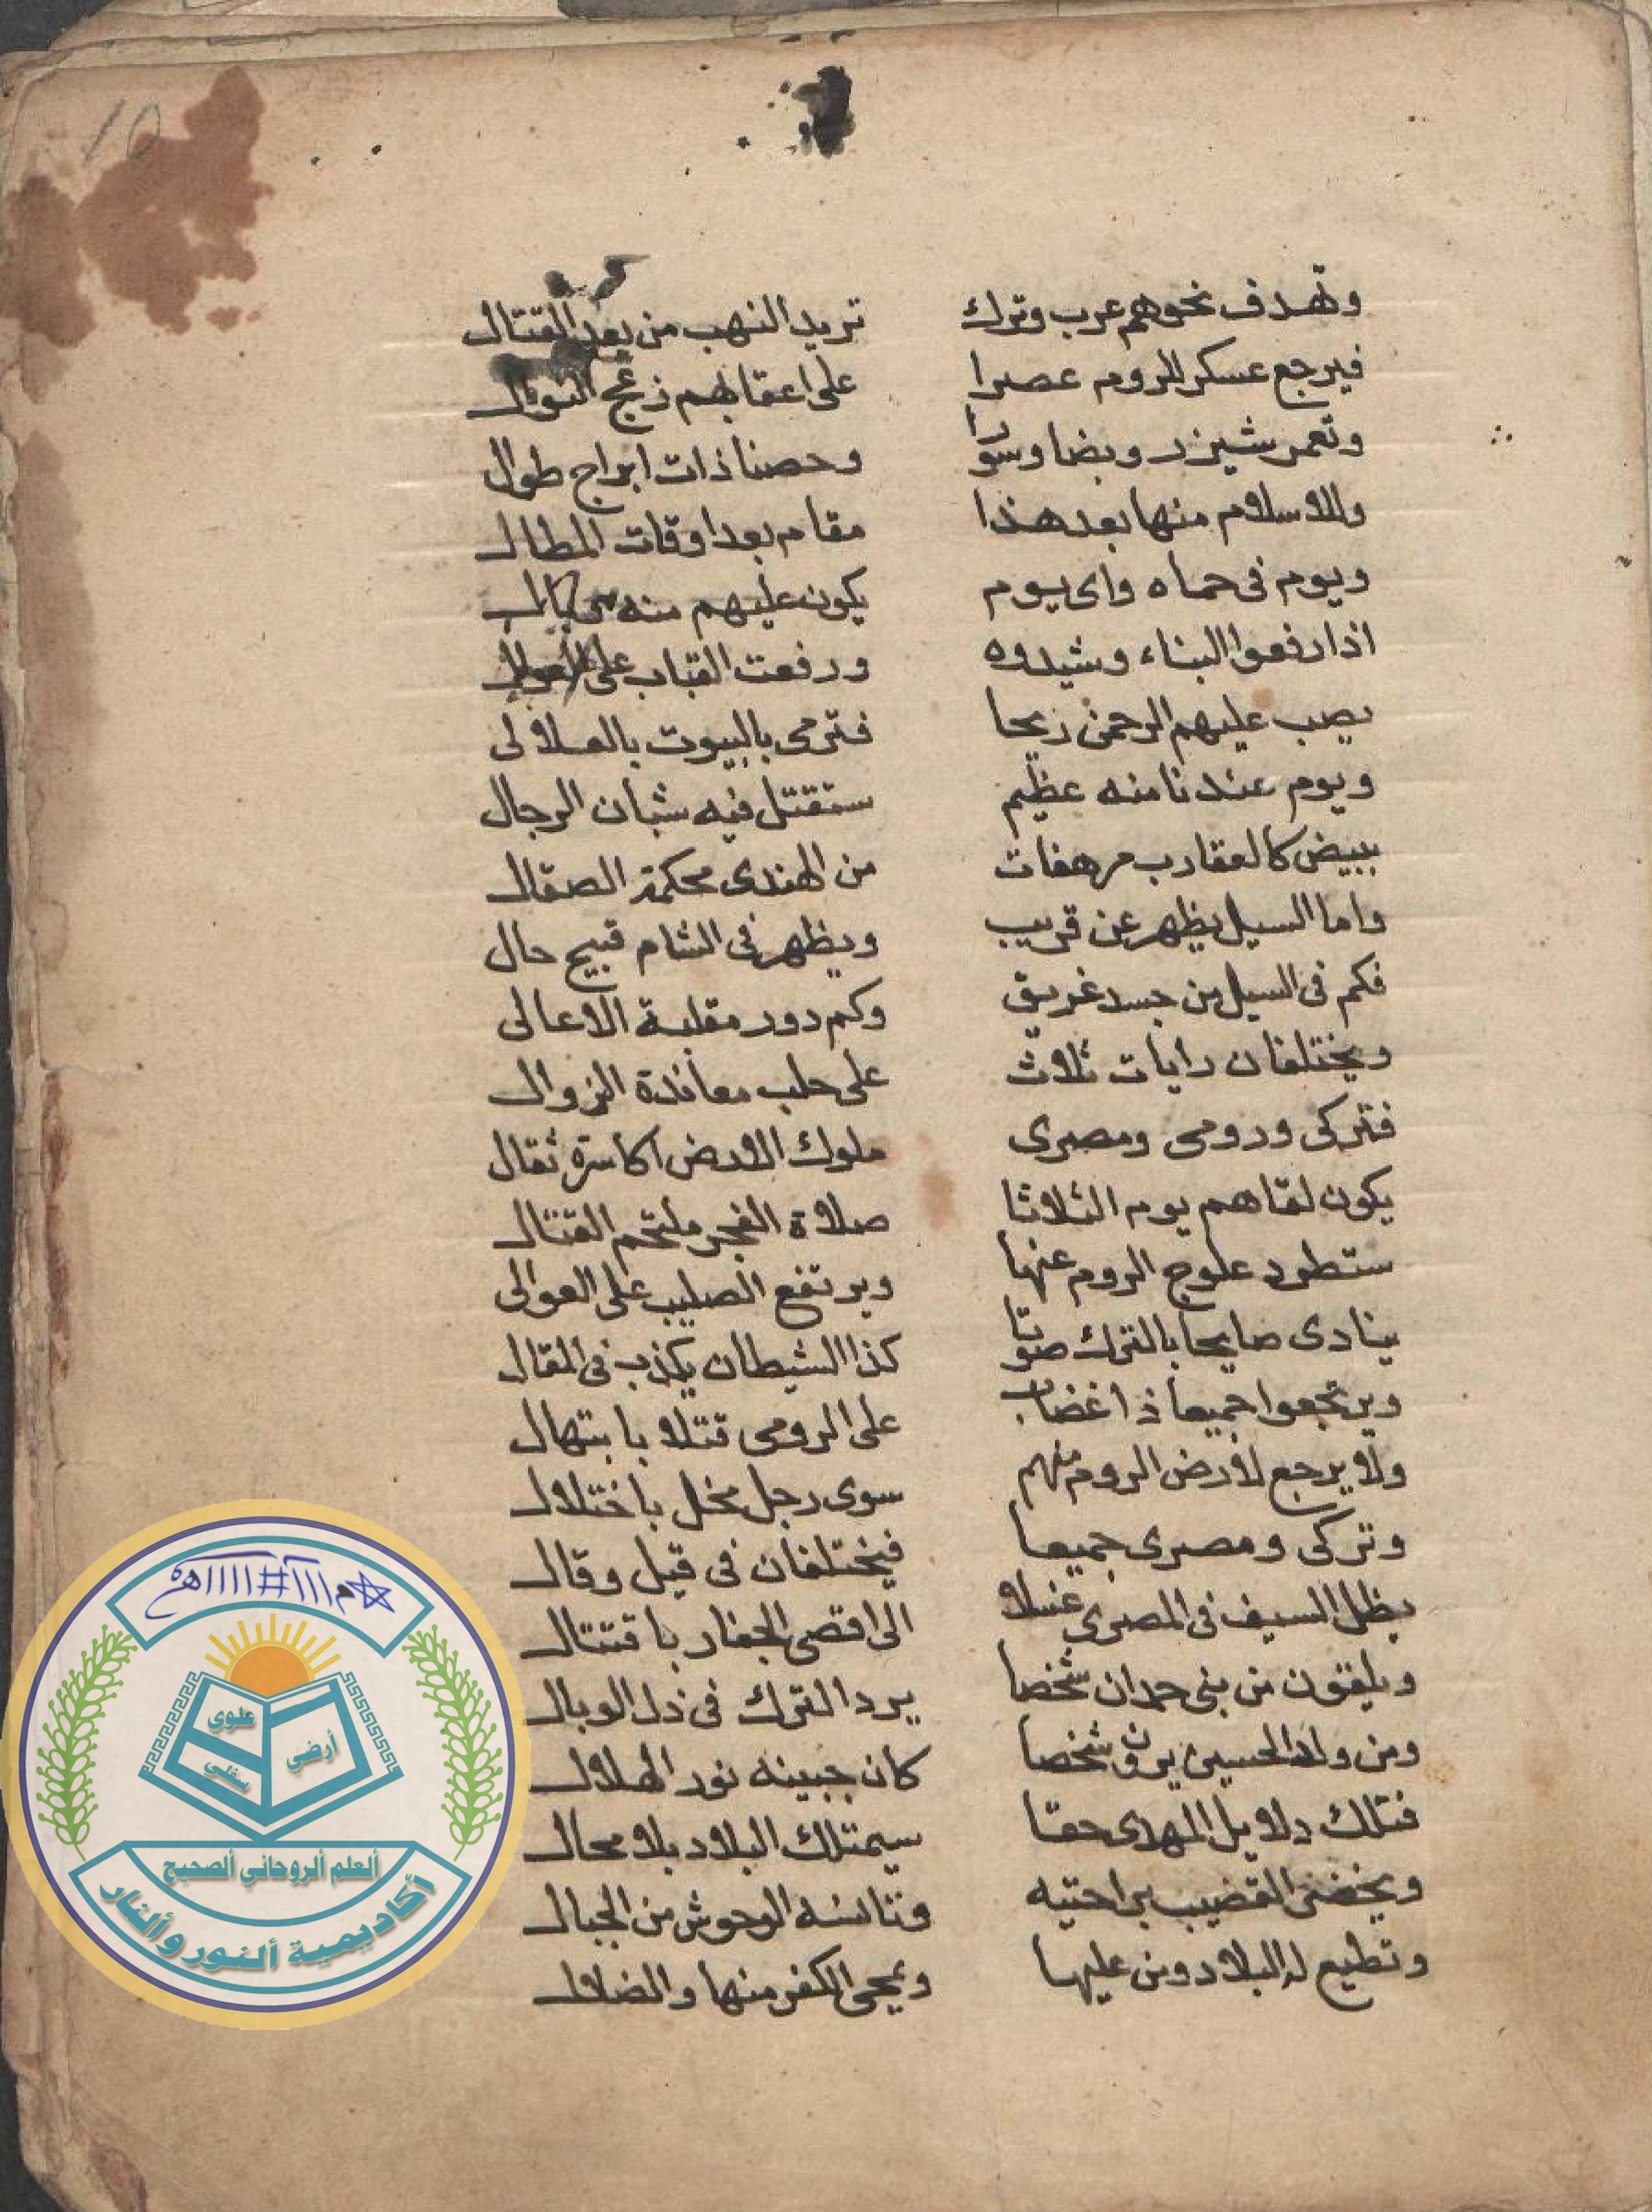 10
وتهدف نحوهم عرب وترك تريد النهب من بعد القتال
فيرجع عسكر الروم عصرا على اعقابهم زعج النوال
وتعمر شيزر وبضا وسورا وحصنا ذات ابراج طوال
وللاسلام منها بعد هذا مقام بعد اوقات المطال
ويوم فى حماه واى يوم يكون عليهم منه
اذا رفعوا البناء وشيدوه ورفعت القباب على
يصب عليهم الرحمن ريحا فترمى بالبيوت بالعلالى
ويوم عندنا منه عظيم ستقتل فيه شبان الرجال
ببيض كالعقارب مرهفات من الهندى محكمة الصقال
واما السيل يظهر عن قريب ويظهر فى الشام قبيح حال
فكم فى السيل من جسد غريق وكم دور مقلبة الاعالى
ويختلفان رايات ثلاث على حلب معاندة الزوال
فتركى ورومى ومصرى ملوك الارض اكاسرة ثقال
يكون لقاهم يوم الثلاثا صلاة الفجر ملتحم القتال
ستطرد علوج الروم عنها ويرتفع الصليب على العوالى
ينادى صايحا بالترك صوتا كذا الشيطان يكذب فى المقال
ويرتجعوا جميعا ذا غضاب على الرومى قتلا بابتهال
ولا يرجع لارض الروم منهم سوى رجل مخل باختلال
وتركى ومصرى جميعا فيختلفان فى قيل وقال
يظل السيف فى المصرى غسلا الى اقصى الجفار باقتتال
ويلتقون من بنى حمدان شخصا يرد الترك فى ذل الوبال
ومن ولد الحسين يرون شخصا كان جبينه نور الهلال
فتلك دلايل المهدى حقا سيمتلك البلاد بلا محال
ويخضر القضيب براحتيه وتانسه الوحوش من الجبال
وتطيع له البلاد ومن عليها ويمحى الكفر منها والضلال
علوي
أرضي
سفلي
ألعلم ألروحاني ألصحيح
أكاديمية ألنور وألنار